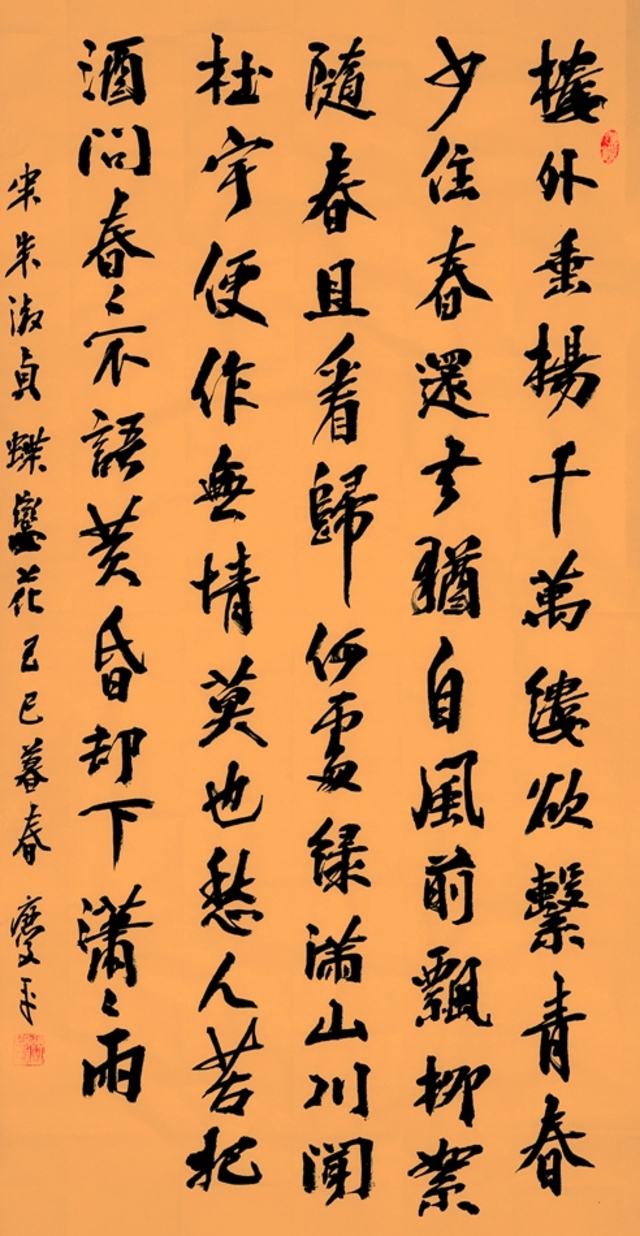 樓外垂揚千萬縷欲繫青春
少住春還去猶自風前飄柳絮
隨春且看歸何處綠滿山川聞
杜宇便作無情莫也愁人苦把
酒問春〻不語黃昏却下瀟〻雨
宋朱淑貞蝶戀花己巳暮春